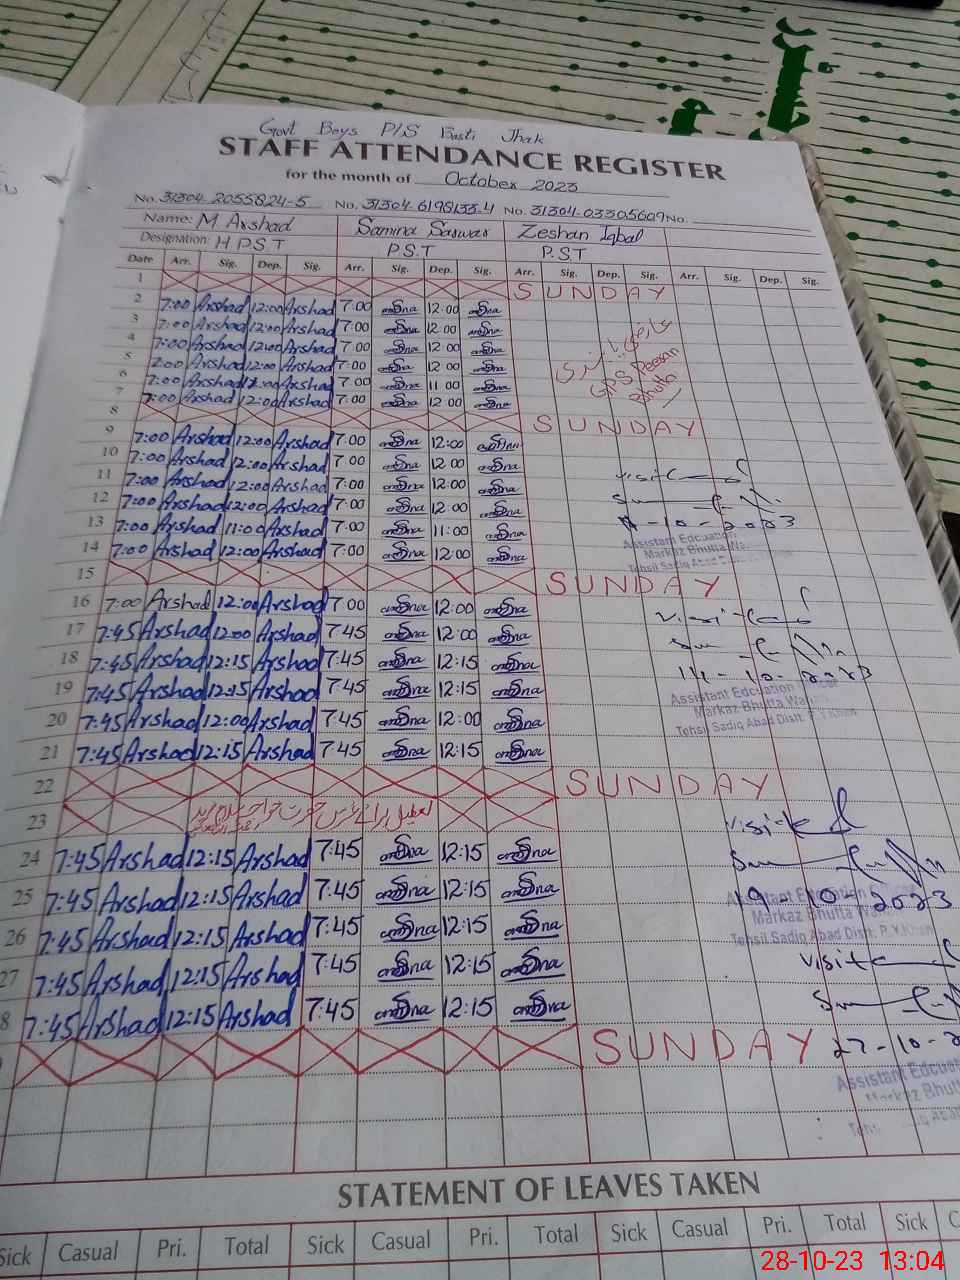 Govt Boys P/S Basti Jhak
STAFF ATTENDANCE REGISTER
for the month of October 2023
No. 31304-2055824-5 No. 31304-6198133-4 No. 31304-03305609 No.
Name: M Arshad Samina Sarwar Zeshan Iqbal
Designation: H P S T P.S.T P.S.T
Date Arr. Sig. Dep. Sig. Arr. Sig. Dep. Sig. Arr. Sig. Dep. Sig. Arr. Sig. Dep. Sig.
1 SUNDAY
2 7:00 Arshad 12:00 Arshad 7:00 12:00
3 7:00 Arshad 12:00 Arshad 7:00 12:00
4 7:00 Arshad 12:00 Arshad 7:00 12:00
5 7:00 Arshad 12:00 Arshad 7:00 12:00
6 7:00 Arshad Arshad 7:00 11:00
7 7:00 Arshad 12:00 Arshad 7:00 12:00
عارضی
GPS
Bhutta
8 SUNDAY
9 7:00 Arshad 12:00 Arshad 7:00 12:00
10 7:00 Arshad 12:00 Arshad 7:00 12:00
11 7:00 Arshad 12:00 Arshad 7:00 12:00
12 7:00 Arshad 12:00 Arshad 7:00 12:00
13 7:00 Arshad 11:00 Arshad 7:00 11:00
14 7:00 Arshad 12:00 Arshad 7:00 12:00
visited
-10-2023
Assistant Edcuation
Markaz Bhutta Wa
Tehsil Sadiq Abad
15 SUNDAY
16 7:00 Arshad 12:00 Arshad 7:00 12:00
17 7:45 Arshad 12:00 Arshad 7:45 12:00
18 7:45 Arshad 12:15 Arshad 7:45 12:15
19 7:45 Arshad 12:15 Arshad 7:45 12:15
20 7:45 Arshad 12:00 Arshad 7:45 12:00
21 7:45 Arshad 12:15 Arshad 7:45 12:15
visited
14-10-2023
Assistant Edcuation
Markaz Bhutta
Tehsil Sadiq Abad Distt. R.Y.Khan
22 SUNDAY
23 تعطیل برائے عرس حضرت خواجہ غلام فرید
24 7:45 Arshad 12:15 Arshad 7:45 12:15
25 7:45 Arshad 12:15 Arshad 7:45 12:15
26 7:45 Arshad 12:15 Arshad 7:45 12:15
27 7:45 Arshad 12:15 Arshad 7:45 12:15
8 7:45 Arshad 12:15 Arshad 7:45 12:15
visited
19-10-2023
Assistant Edcuation
Markaz Bhutta
Tehsil Sadiq Abad Distt. R.Y.Khan
visited
SUNDAY
27-10-2
Assistant Edcuat
Markaz Bhut
STATEMENT OF LEAVES TAKEN
Sick Casual Pri. Total Sick Casual Pri. Total Sick Casual Pri. Total Sick C
28-10-23 13:04